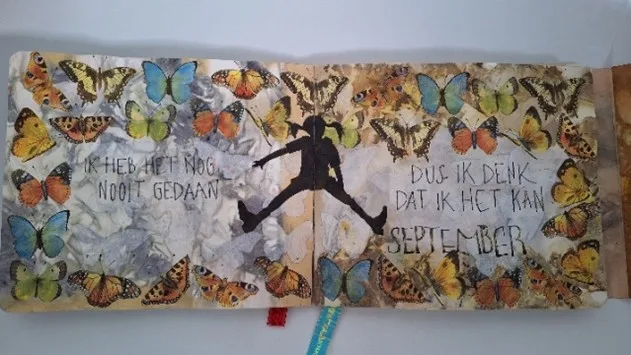 IK HEB HET NOG
NOOIT GEDAAN
DUS IK DENK
DAT IK HET KAN
SEPTEMBER